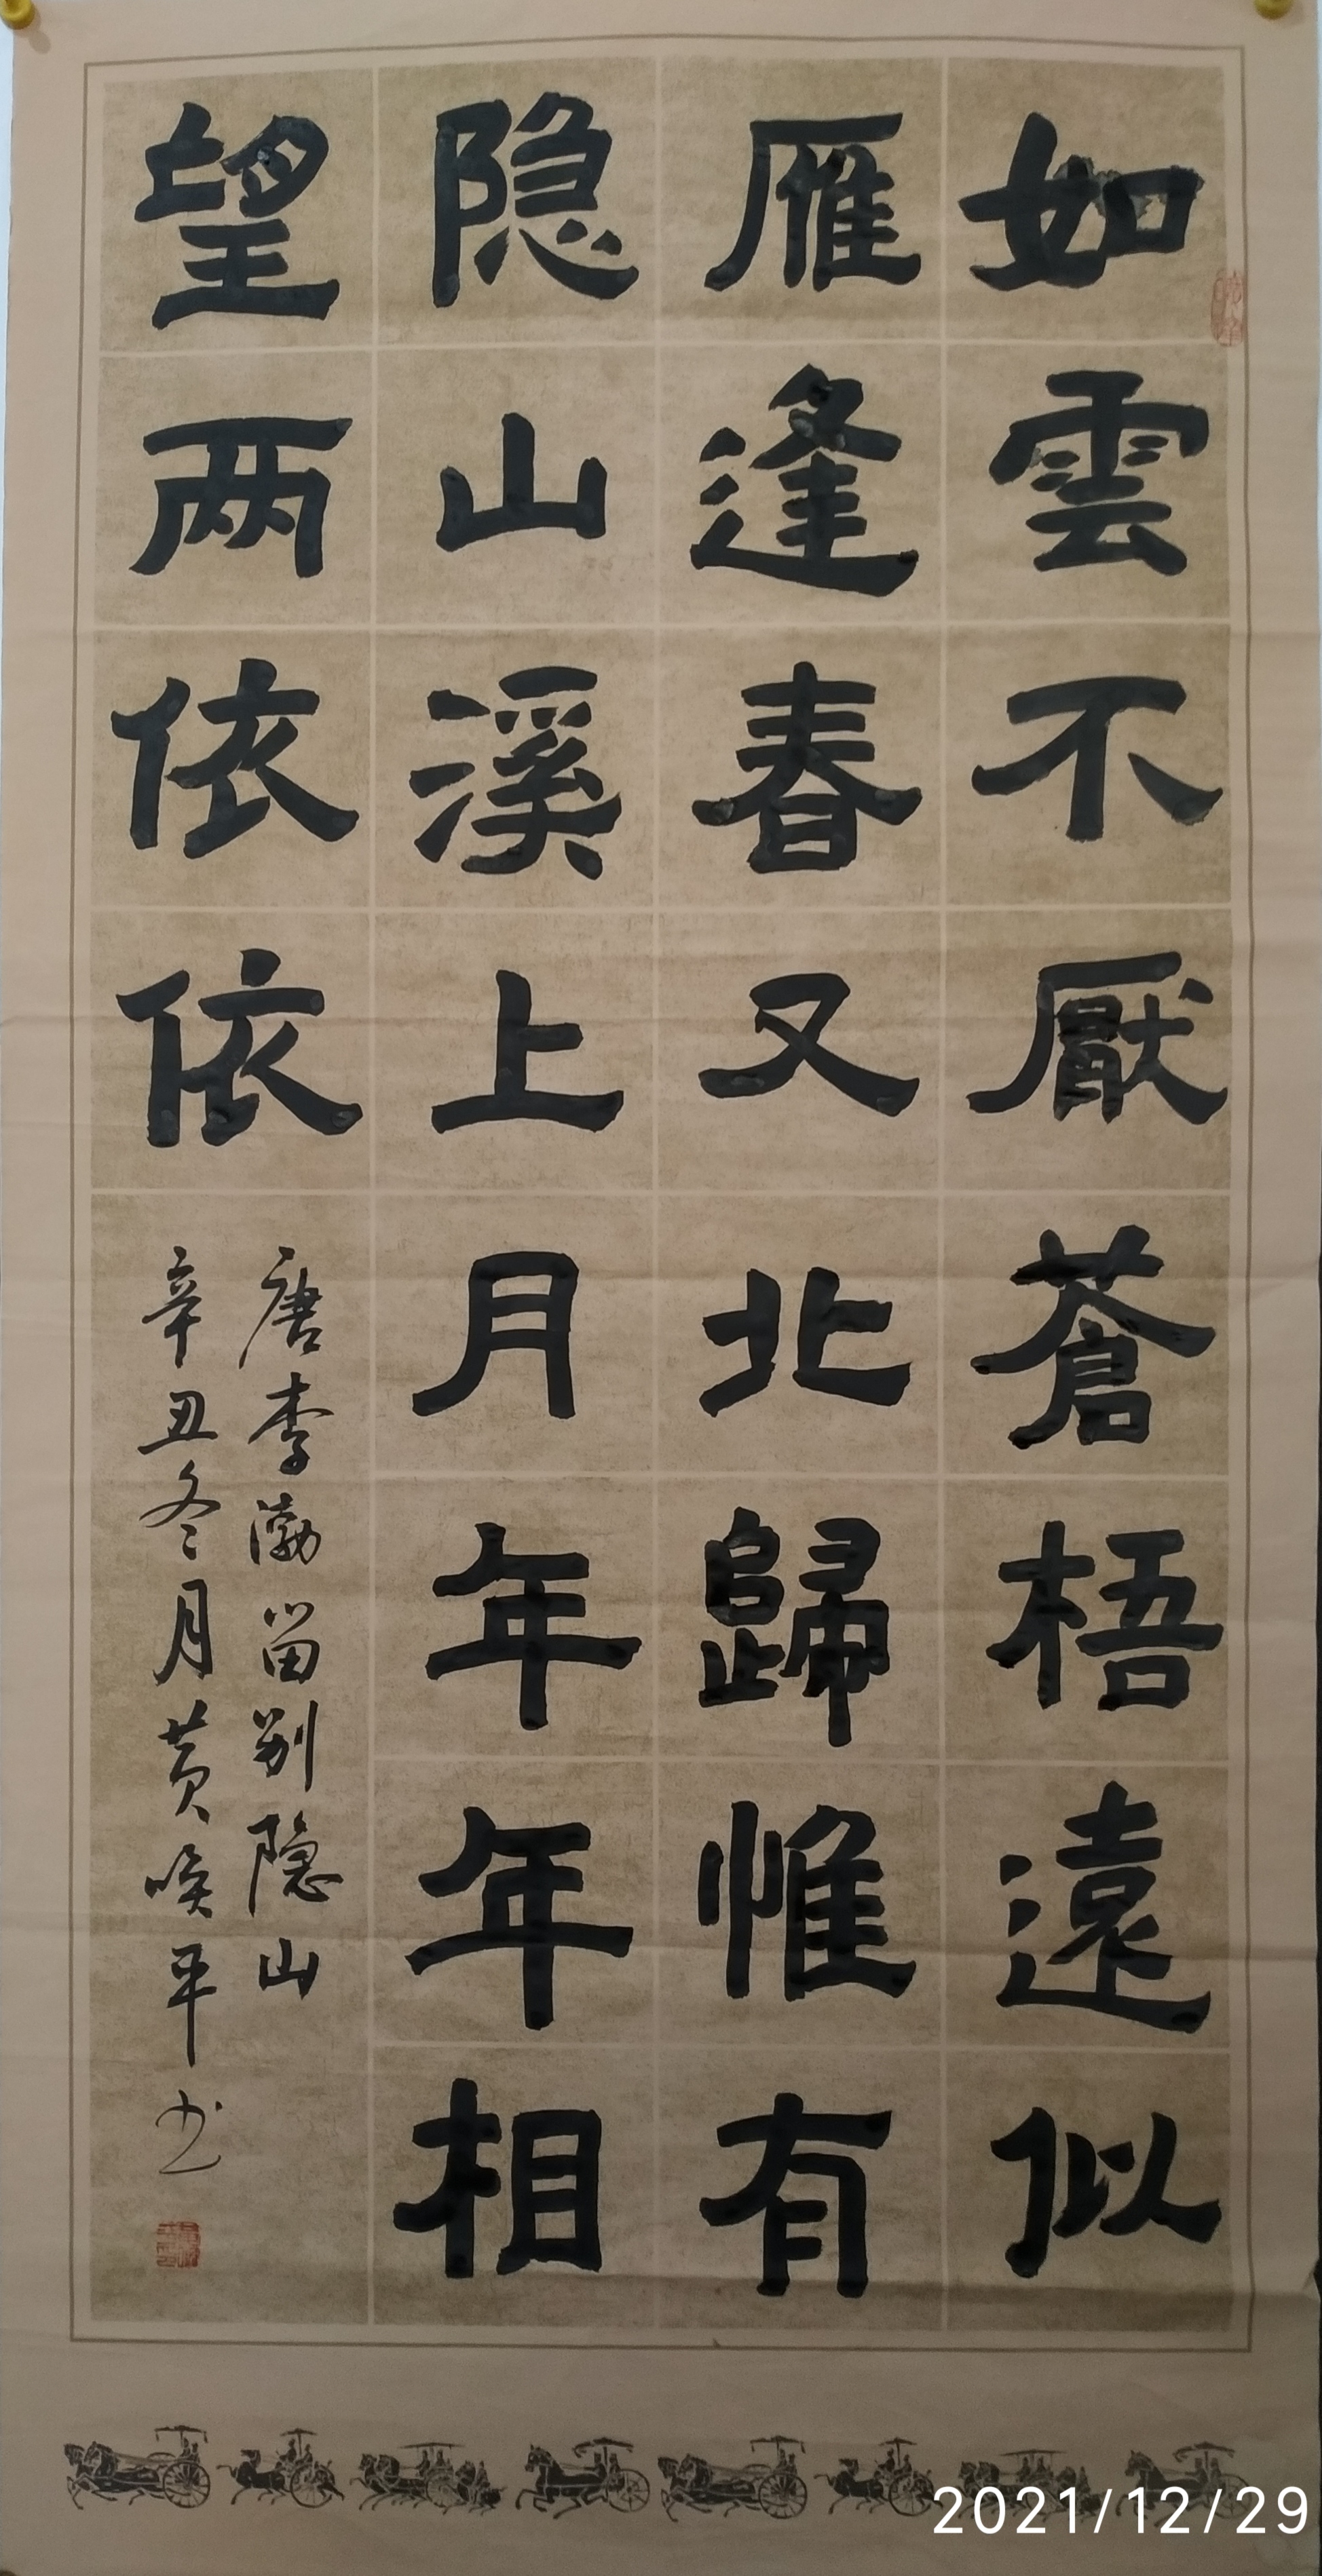 如雲不厭蒼梧遠似
雁逢春又北歸惟有
隐山溪上月年年相
望两依依
唐李渤留别隐山
辛丑冬月黄喚平书
2021/12/29